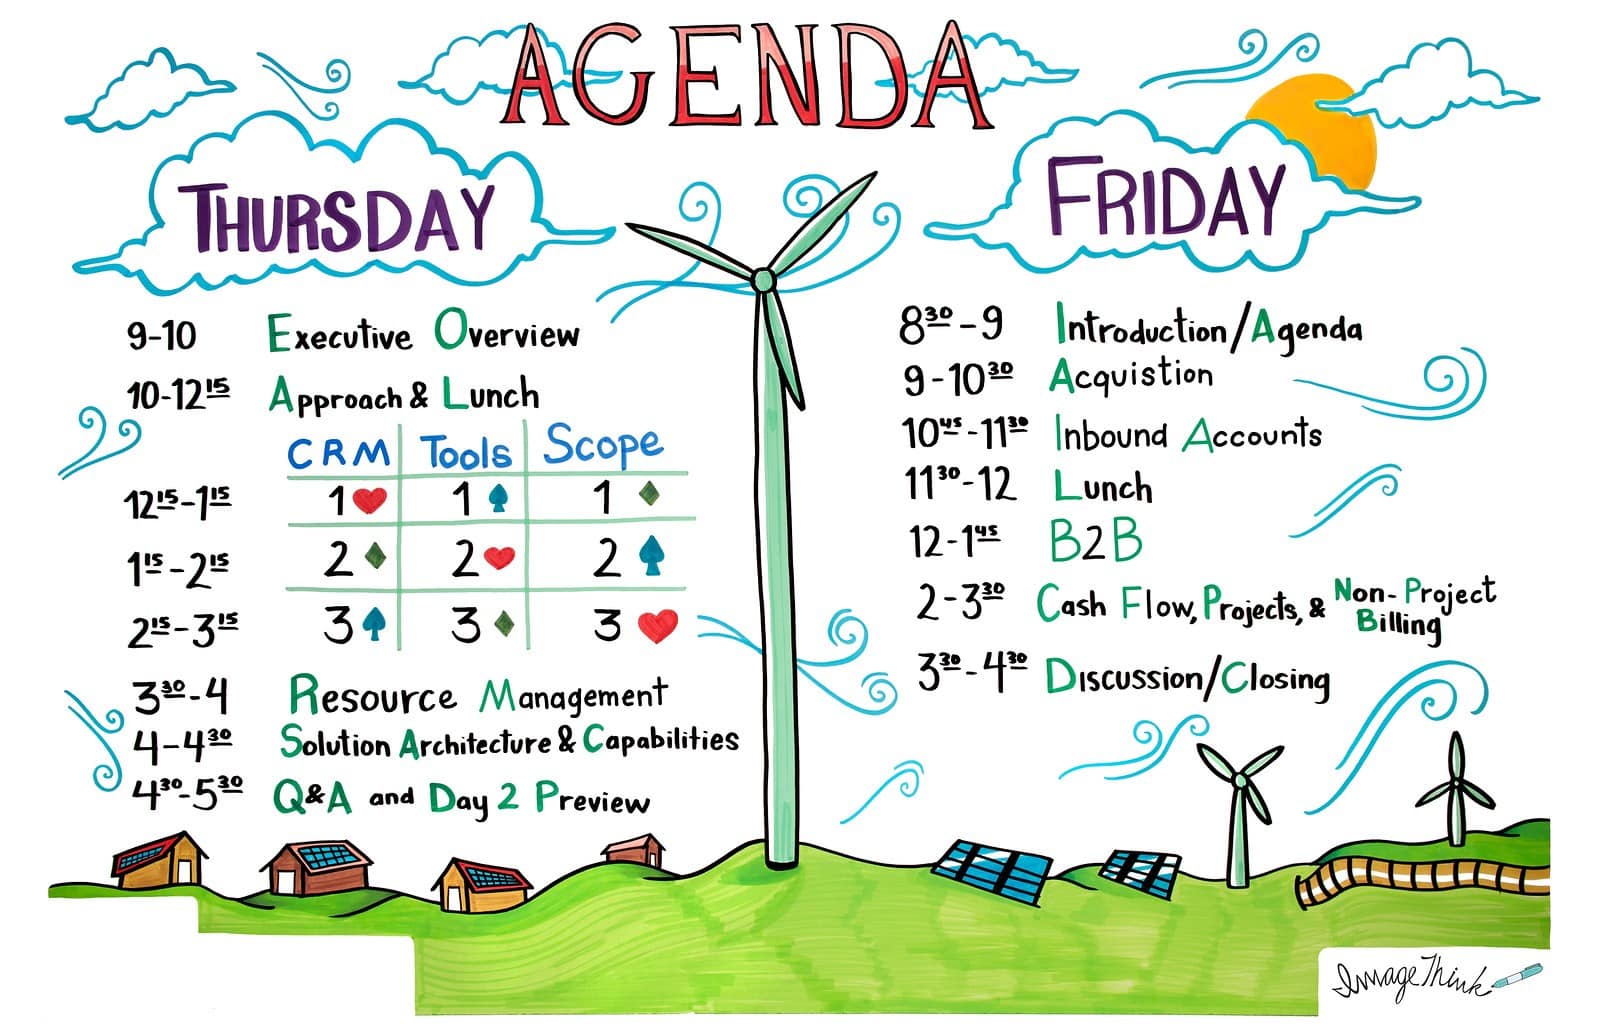 AGENDA
THURSDAY
9-10 Executive Overview
10-12¹⁵ Approach & Lunch
CRM Tools Scope
12¹⁵-1¹⁵ 1♥ 1♠ 1♦
1¹⁵-2¹⁵ 2♦ 2♥ 2♠
2¹⁵-3¹⁵ 3♠ 3♦ 3♥
3³⁰-4 Resource Management
4-4³⁰ Solution Architecture & Capabilities
4³⁰-5³⁰ Q&A and Day 2 Preview
FRIDAY
8³⁰-9 Introduction/Agenda
9-10³⁰ Acquistion
10⁴⁵-11³⁰ Inbound Accounts
11³⁰-12 Lunch
12-1⁴⁵ B2B
2-3³⁰ Cash Flow, Projects, & Non-Project Billing
3³⁰-4³⁰ Discussion/Closing
ImageThink